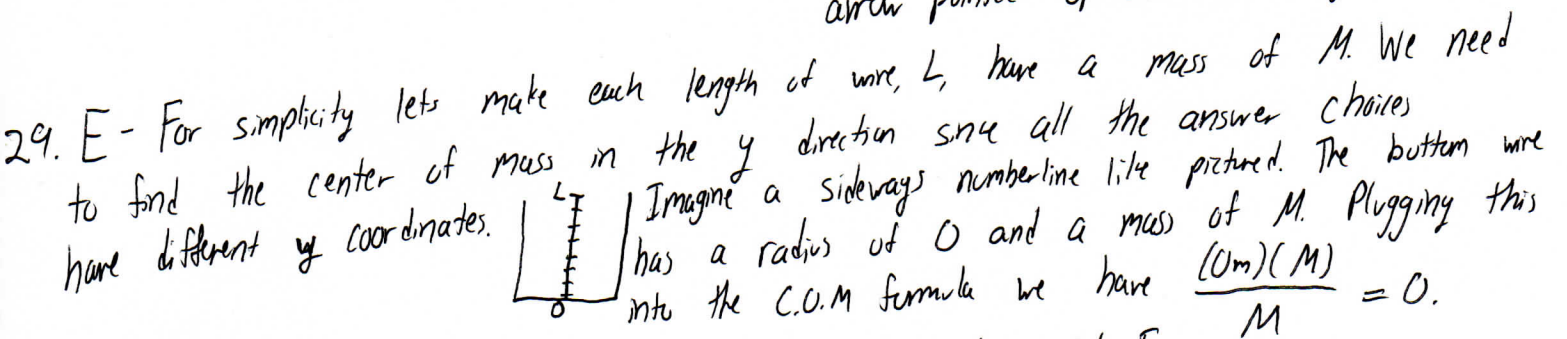 arrow
29. E - For simplicity lets make each length of wire, L, have a mass of M. We need
to find the center of mass in the y direction since all the answer choices
have different y coordinates. L 0 Imagine a sideways numberline like pictured. The bottom wire
has a radius of 0 and a mass of M. Plugging this
into the C.O.M formula we have (0m)(M)/M = 0.